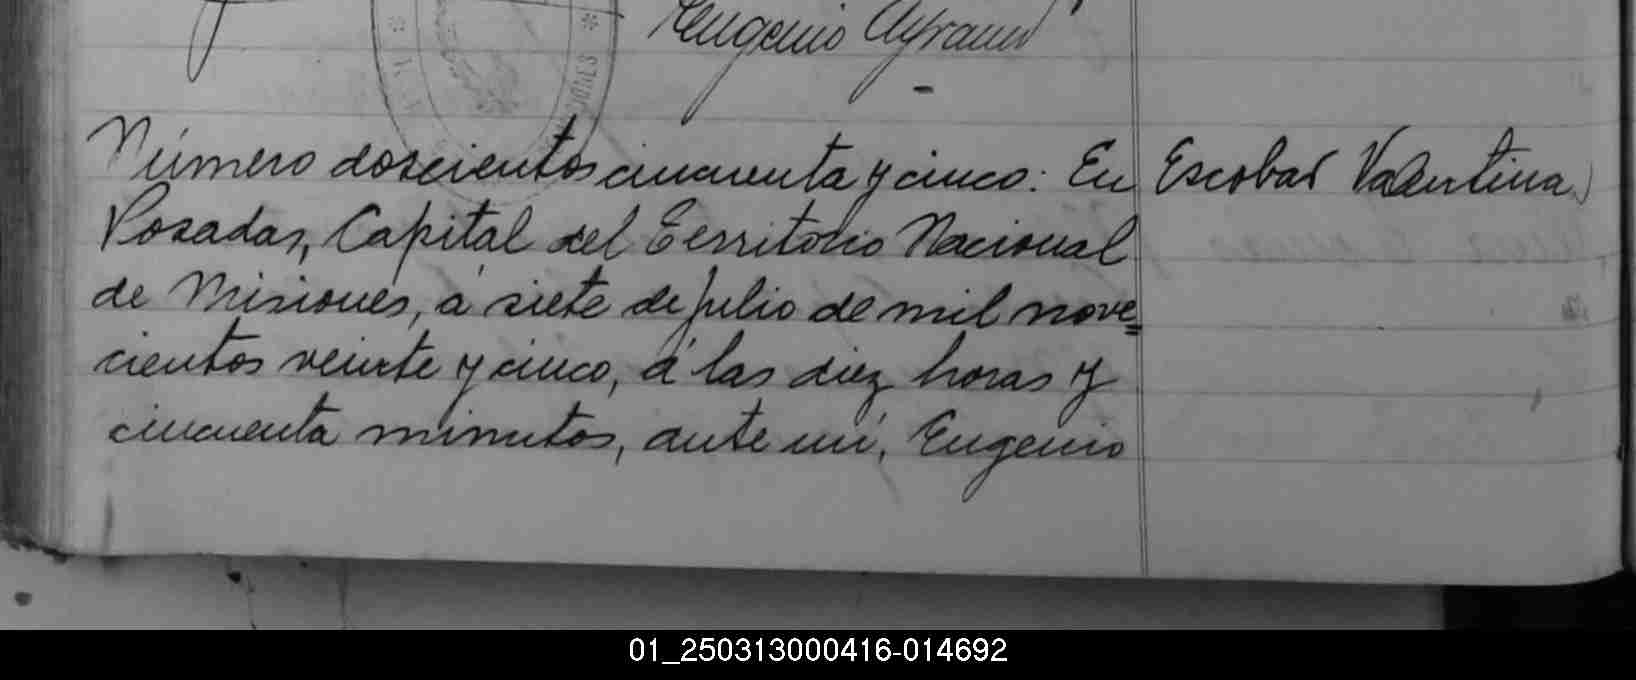 Eugenio Ayrault
Número doscientos cincuenta y cinco: En
Escobar Valentina
Posadas, Capital del Territorio Nacional
de Misiones, á siete de julio de mil nove=
cientos veinte y cinco, á las diez horas y
cincuenta minutos, ante mí, Eugenio
01_250313000416-014692